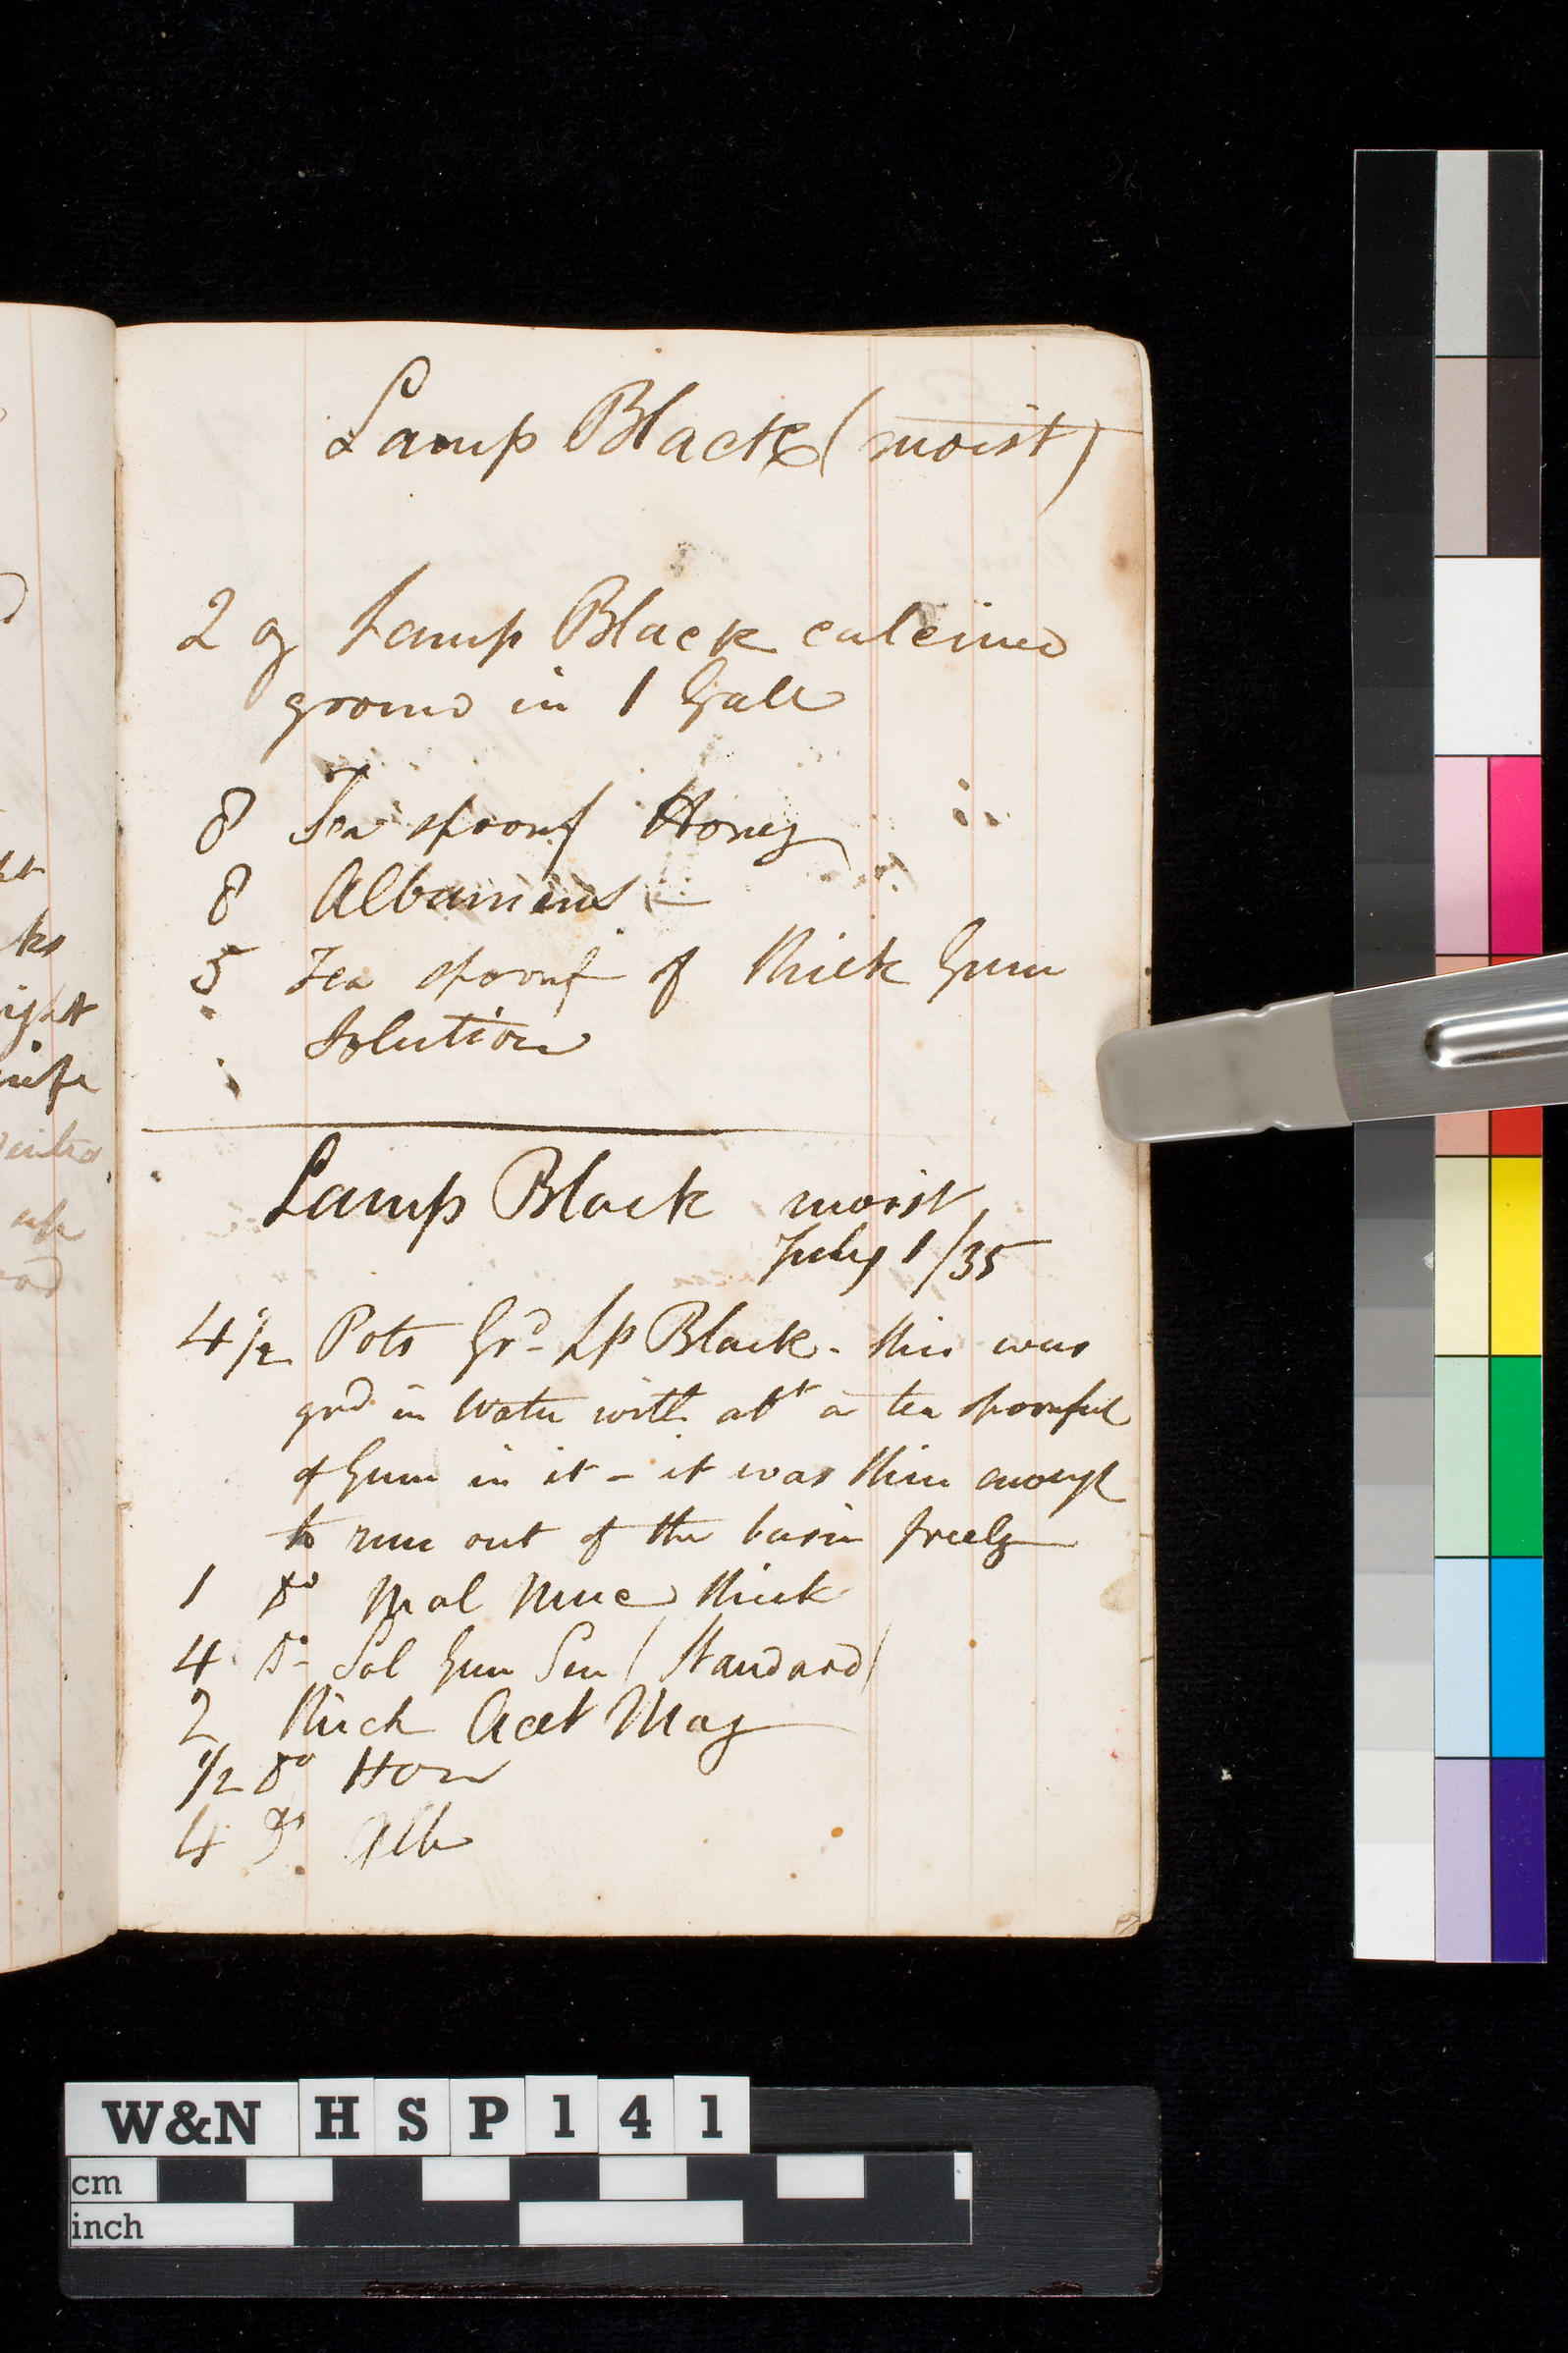 ht
ks
ight
Lamp Black (moist)
2 oz Lamp Black calcined
ground in 1 Gall
8 Tea spoonf Honey
8 Albumens
5 Tea spoonf of thick Gum
Solution
Lamp Black moist
July 1/35
4 1/2 Pots Grd Lp Black - this was
grd in Water with abt a tea spoonful
of Gum in it - it was thin enough
to run out of the basin freely
1 do Mal Muc thick
4 do Sol Gum Sen (Standard)
2 thick Acet Mag
1/2 do Hon
4 do Alb
W&N HSP141
cm
inch